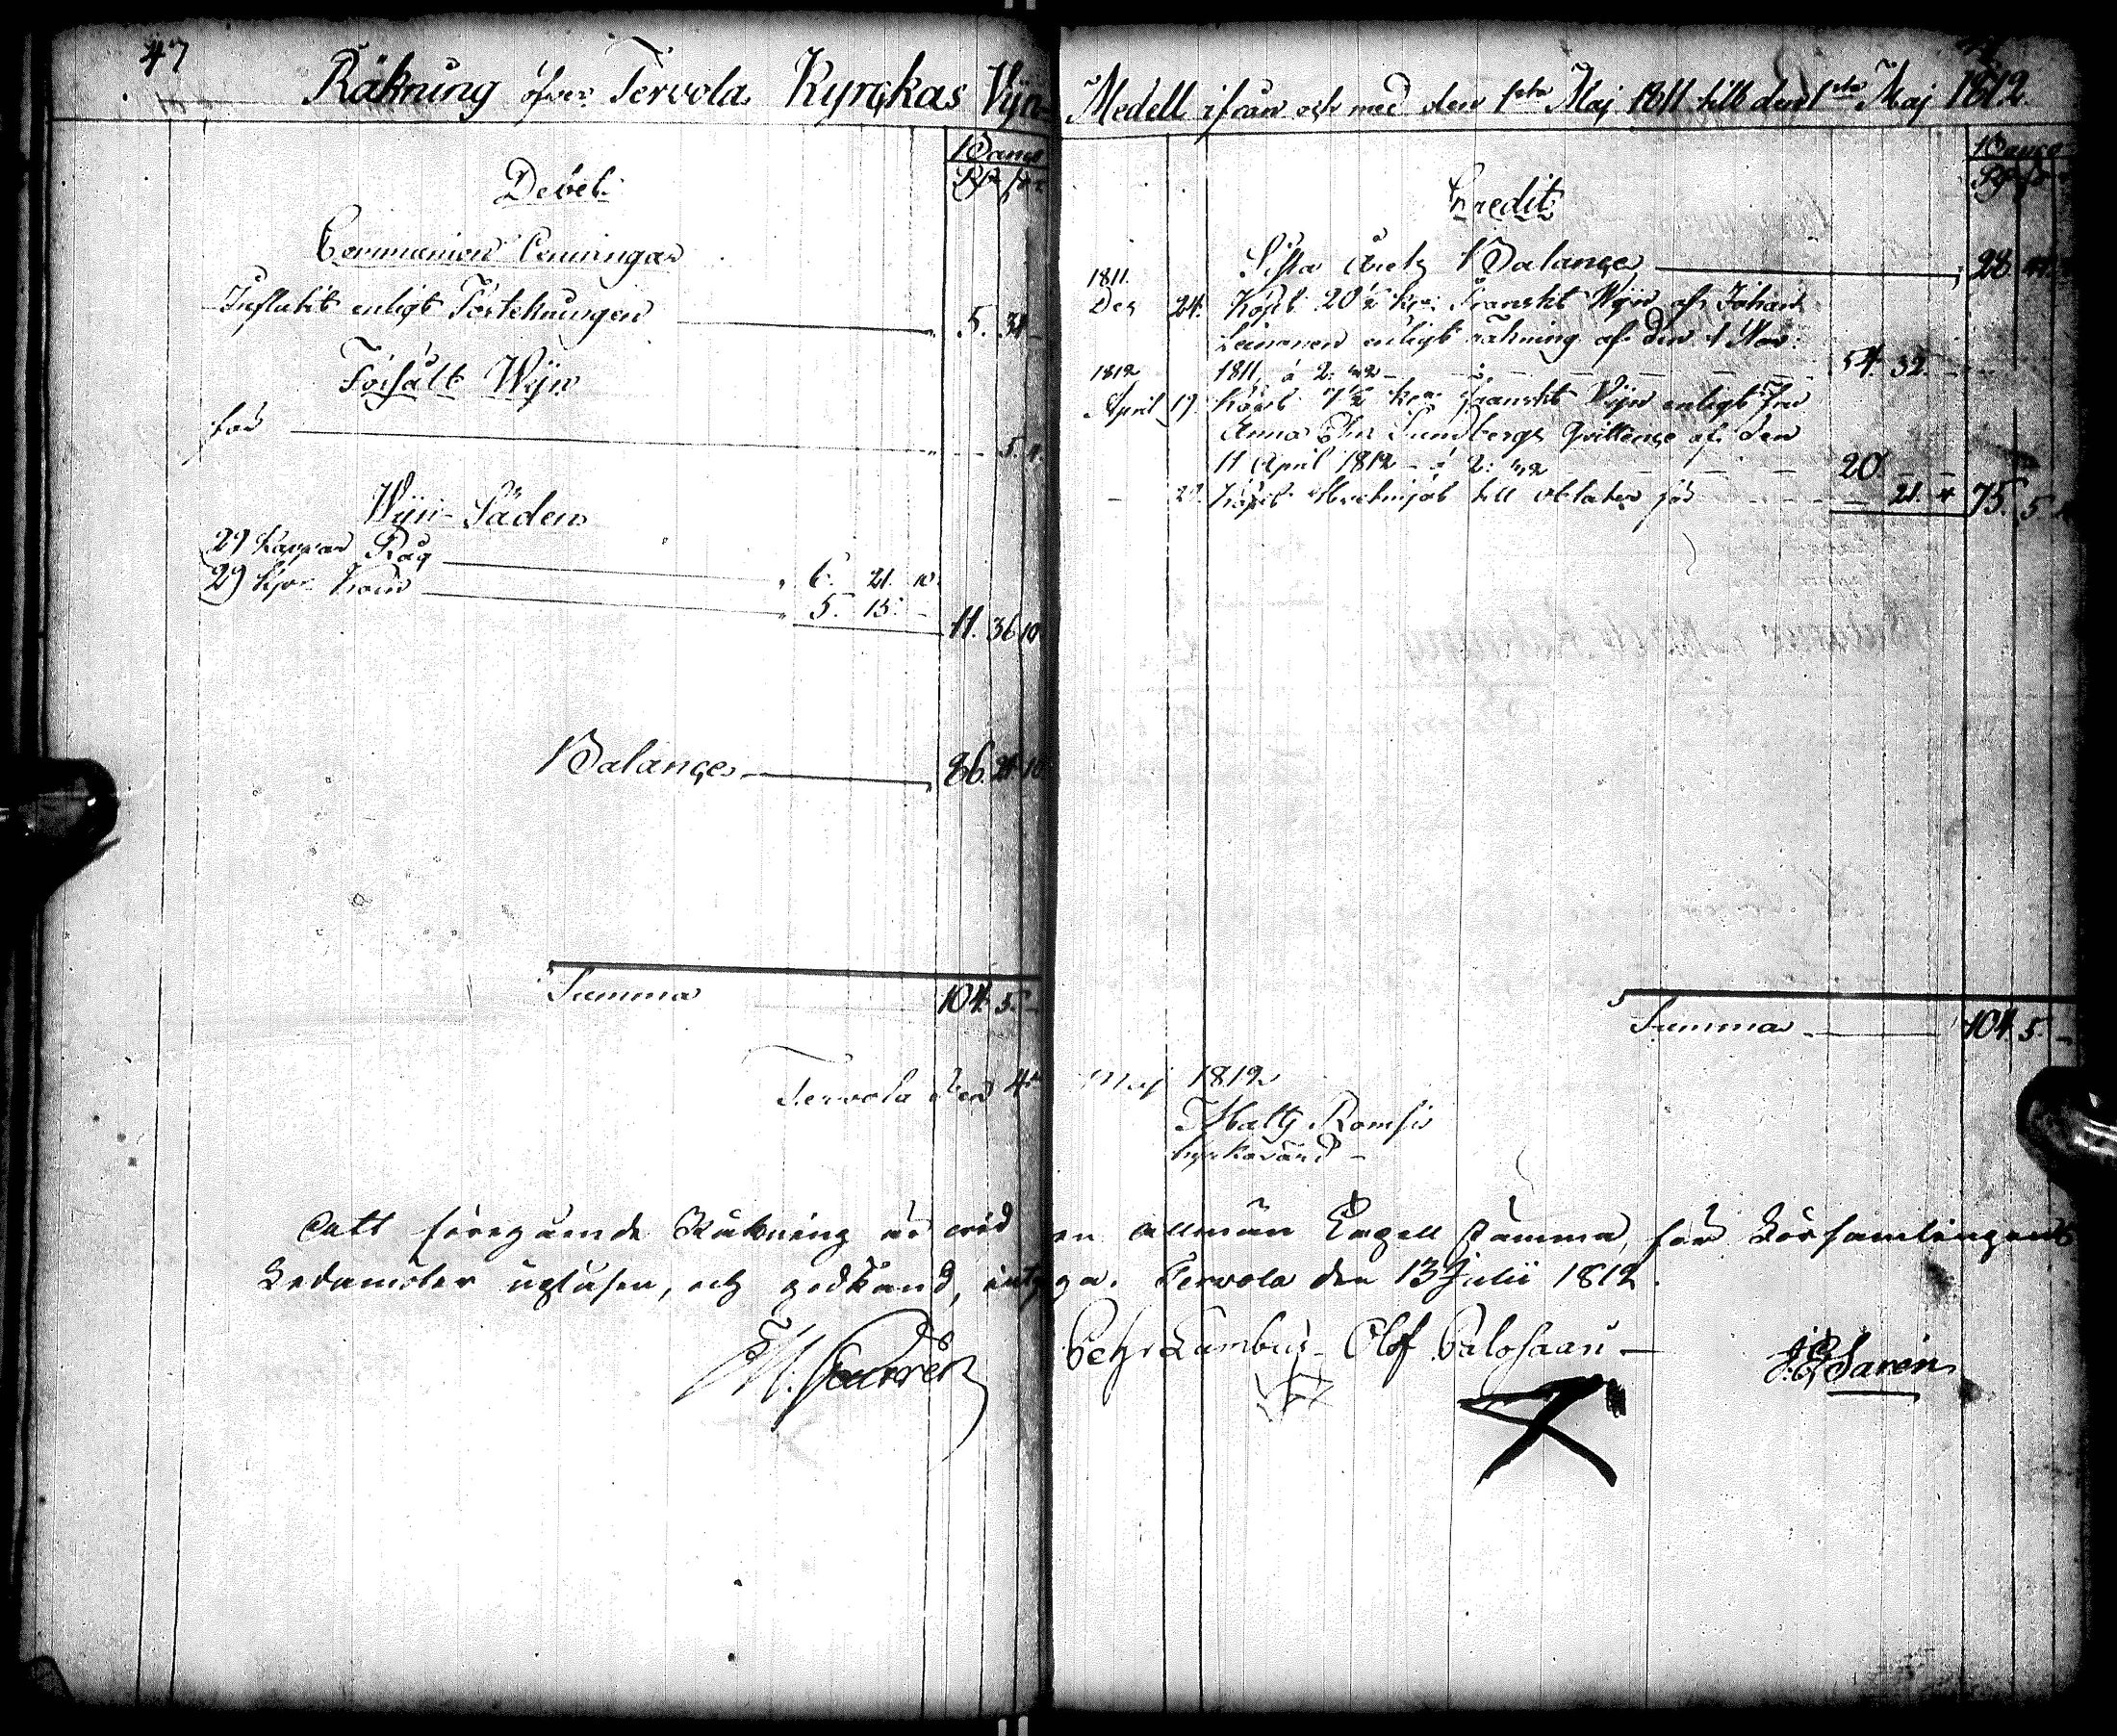 47
Räkning öfver Tervola Kyrckas Vijn-
Banco
Rd s r
Debet
Communion Penningar
Influtit enligt Förtekningen 5. 31 –
Försålt Wijn
för – 5. 4.
Wijn-Säden
29 Kappar Råg 6. 21. 10.
29 Kpr Korn 5. 15. – 11. 36 10.
Balance 86. 21. 10
Summa 104. 5. –
Tervola den 4
Medell ifrån och med den 1sta Maj 1811 till den 1sta Maj 1812.
Banco
Rd s
Credit
Sista Årets Balance 28.
1811.
Dec 24. Köpt 20 1/2 kr: Franskt Wijn af Johan
enligt räkning af den 1 Nov:
1812 1811 à 2. 32 54. 32. –
April 19. Köpt 7 1/2 kr franskt Vijn enligt Fru
Anna Chr Sundbergs Qvittence af den
11 April 1812 – à 2: 32 20. – –
– Köpt Hvetmjöl till oblater för – 21. 4 75. 5.
Summa 104. 5. –
Maj 1812
Matts Romsi
kyrkovärd –
att föregående Räkning är wid en allmän stämma för Församlingens
Ledamöter upläsen, och godkänd, intyga. Tervola den 13 Julii 1812.
Pehr Lambus – Olof Palosaari –